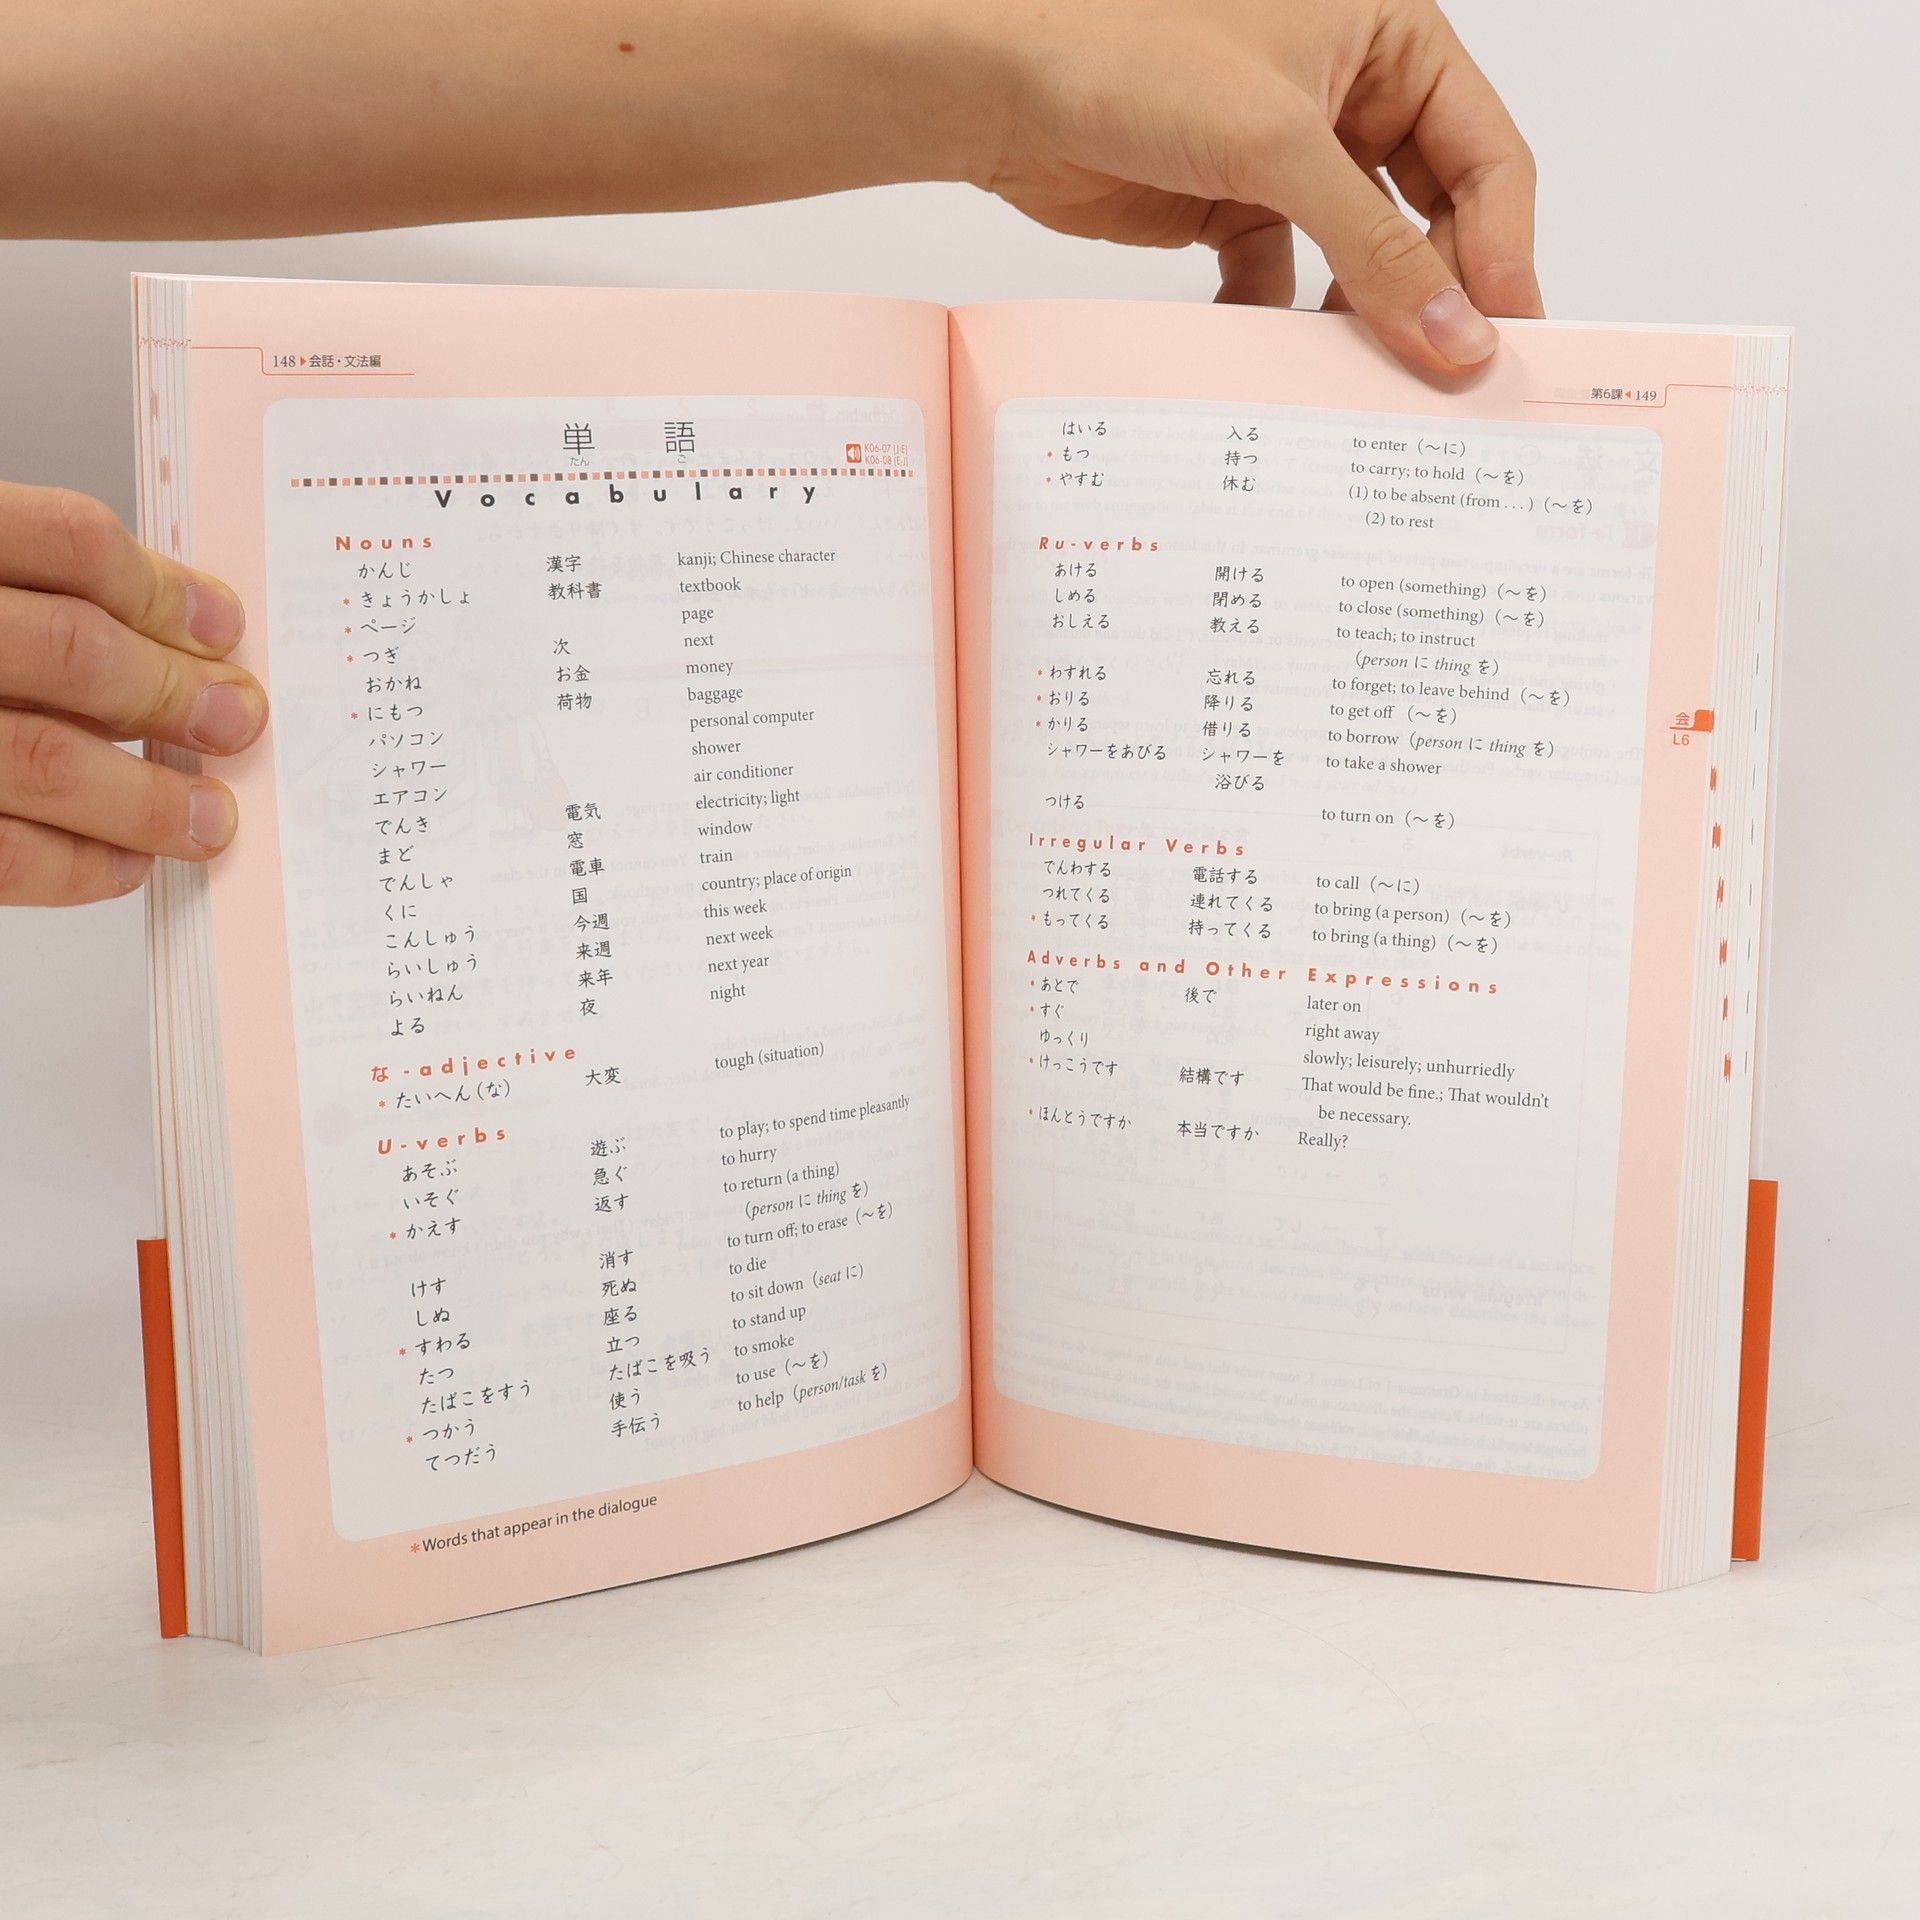 148▶会話・文法編
単語
たん ご
K06-07 (J-E)
K06-08 (E-J)
Vocabulary
Nouns
かんじ 漢字 kanji; Chinese character
* きょうかしょ 教科書 textbook
* ページ page
* つぎ 次 next
おかね お金 money
* にもつ 荷物 baggage
パソコン personal computer
シャワー shower
エアコン air conditioner
でんき 電気 electricity; light
まど 窓 window
でんしゃ 電車 train
くに 国 country; place of origin
こんしゅう 今週 this week
らいしゅう 来週 next week
らいねん 来年 next year
よる 夜 night
な-adjective
* たいへん(な) 大変 tough (situation)
U-verbs
あそぶ 遊ぶ to play; to spend time pleasantly
いそぐ 急ぐ to hurry
* かえす 返す to return (a thing)
(person に thing を)
けす 消す to turn off; to erase (〜を)
しぬ 死ぬ to die
* すわる 座る to sit down (seat に)
たつ 立つ to stand up
たばこをすう たばこを吸う to smoke
* つかう 使う to use (〜を)
てつだう 手伝う to help (person/task を)
*Words that appear in the dialogue
第6課◀149
はいる 入る to enter (〜に)
* もつ 持つ to carry; to hold (〜を)
* やすむ 休む (1) to be absent (from . . . ) (〜を)
(2) to rest
Ru-verbs
あける 開ける to open (something) (〜を)
しめる 閉める to close (something) (〜を)
おしえる 教える to teach; to instruct
(person に thing を)
* わすれる 忘れる to forget; to leave behind (〜を)
* おりる 降りる to get off (〜を)
* かりる 借りる to borrow (person に thing を)
シャワーをあびる シャワーを to take a shower
浴びる
つける to turn on (〜を)
Irregular Verbs
でんわする 電話する to call (〜に)
つれてくる 連れてくる to bring (a person) (〜を)
* もってくる 持ってくる to bring (a thing) (〜を)
Adverbs and Other Expressions
* あとで 後で later on
* すぐ right away
ゆっくり slowly; leisurely; unhurriedly
* けっこうです 結構です That would be fine.; That wouldn't
be necessary.
* ほんとうですか 本当ですか Really?
会
L6